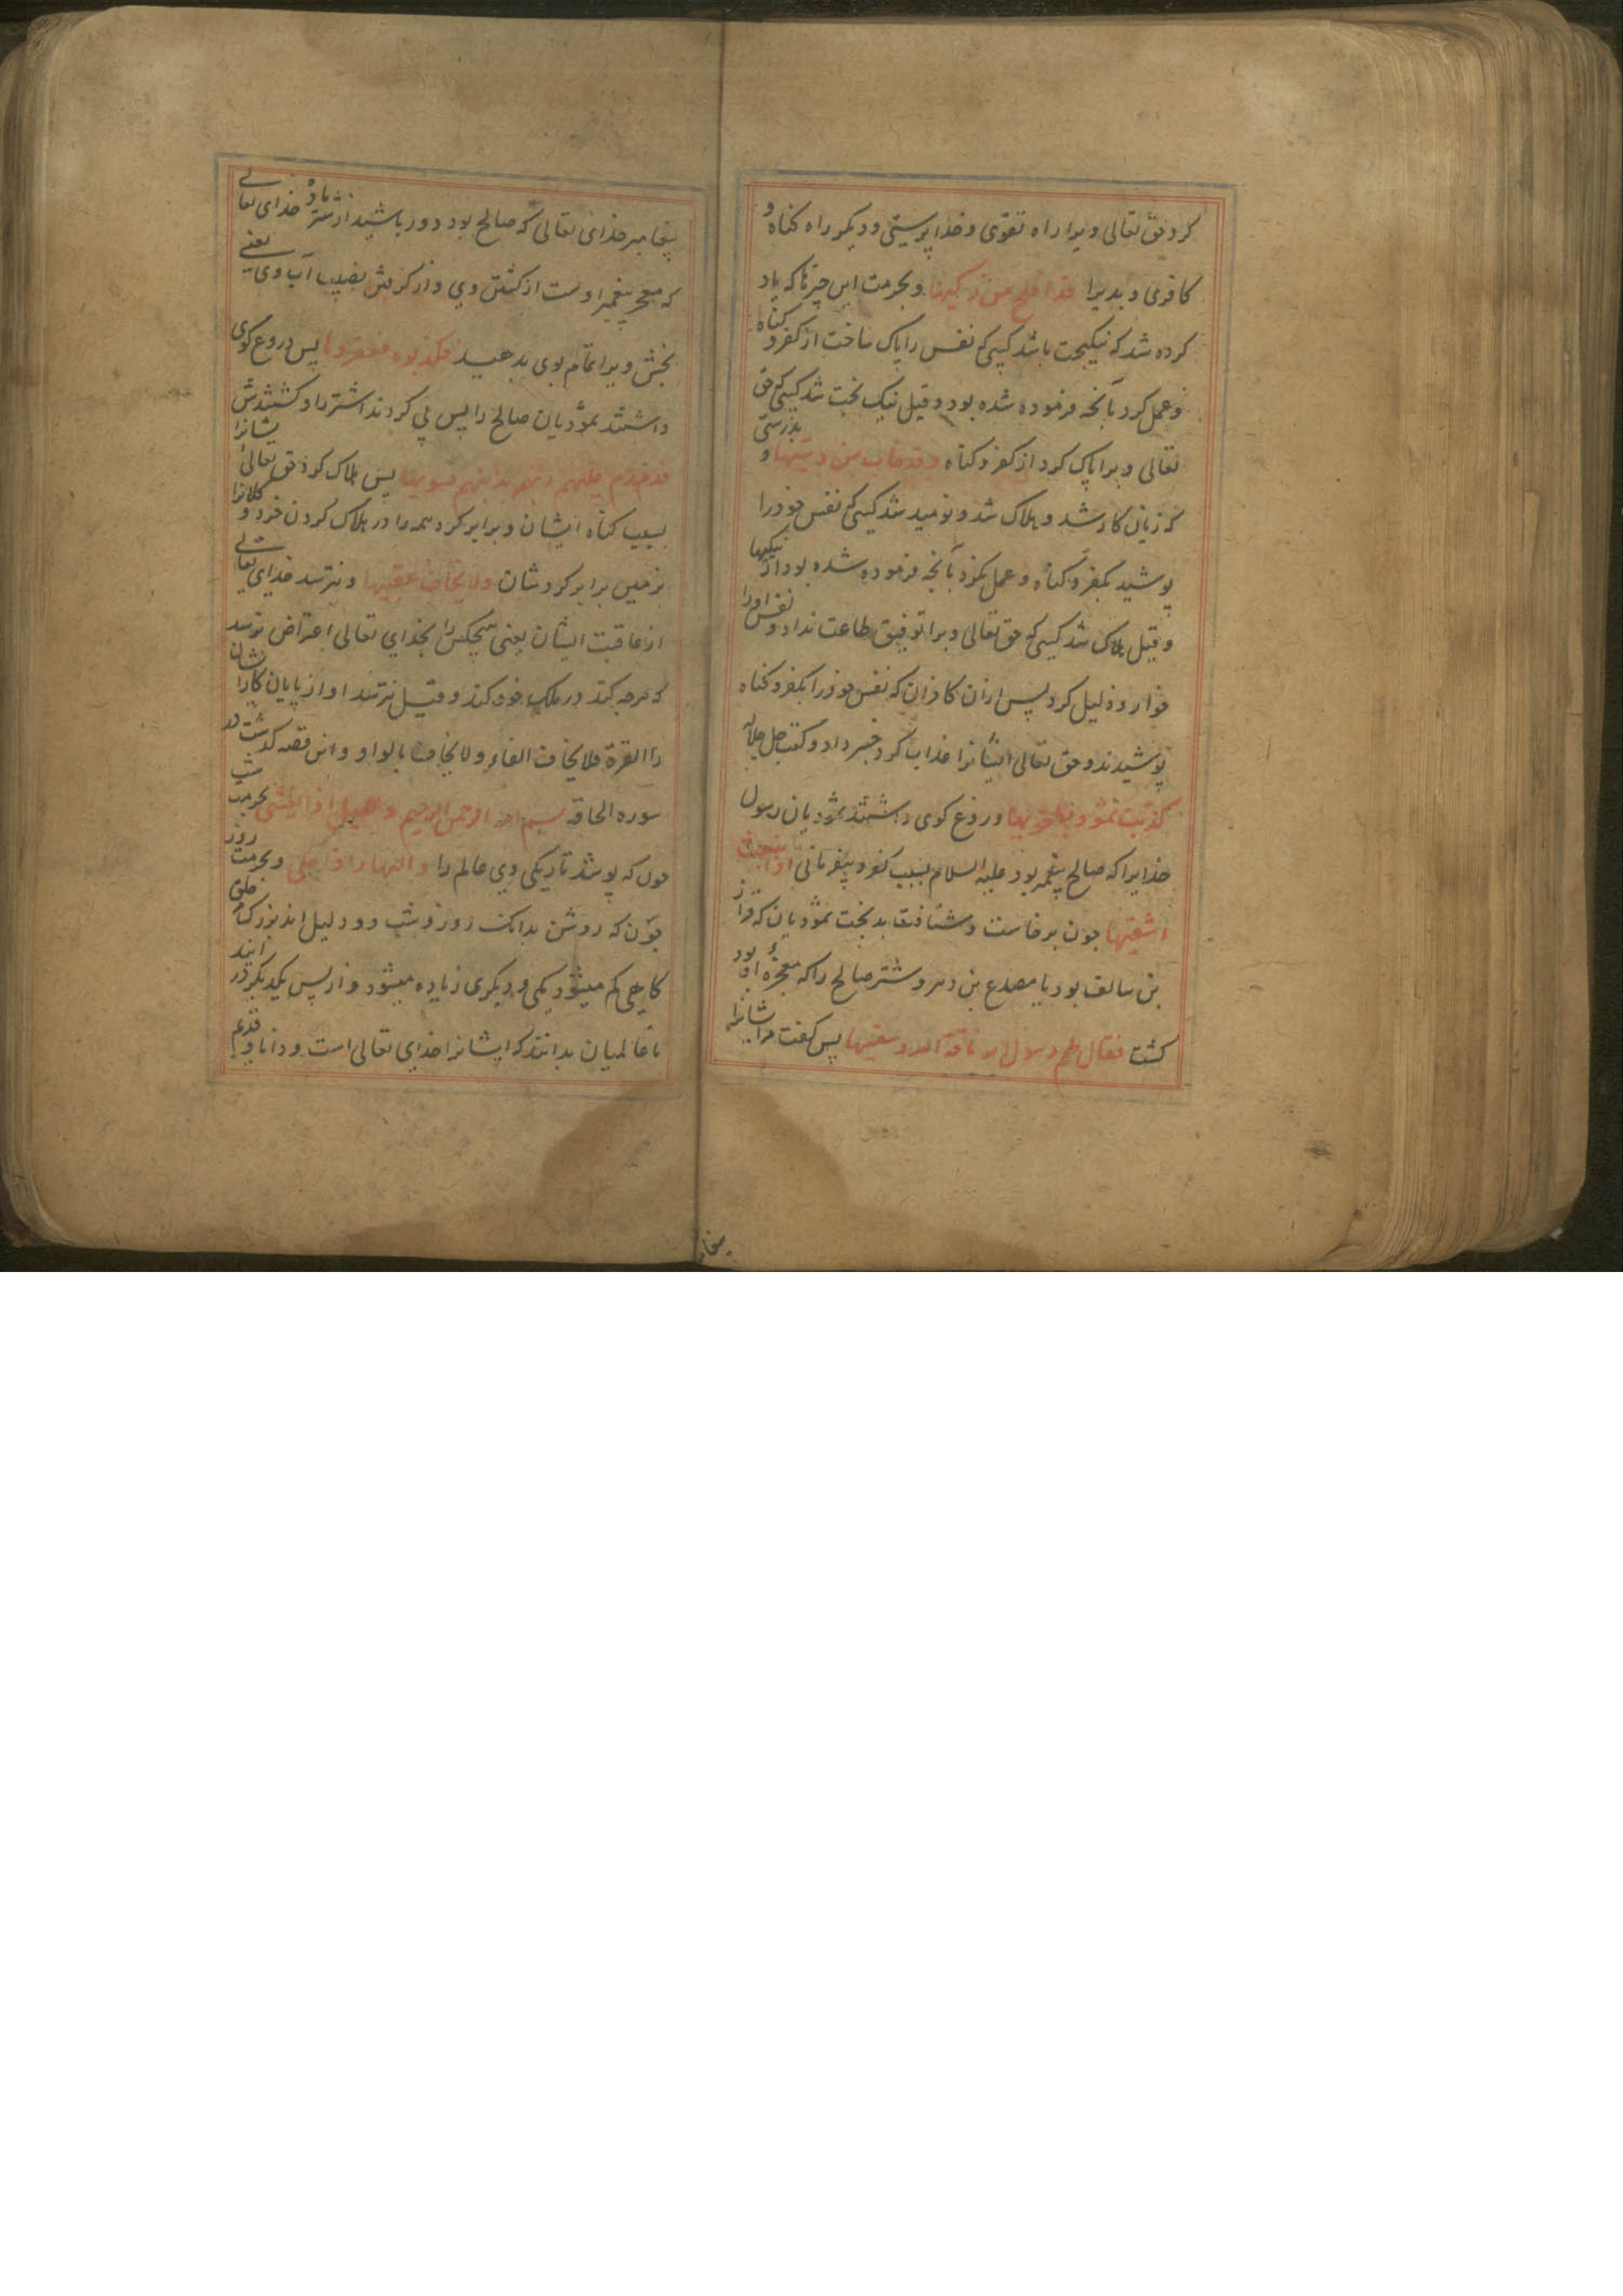 کرد حق تعالی ویرا راه تقوی و خدا پرستی و دیکر راه کناه و
کافری و بدیرا قد افلح من زکیها و بحرمت این چیزها که یاد
کرده شد که نیکبخت باشد کسی که نفس را پاک ساخت از کفر و کناه
و عمل کرد بآنچه فرموده شده بود و قیل نیک بخت شد کسی که حق
تعالی ویرا پاک کرد از کفر و کناه و قد خاب من دسیها و بدرستی
که زیان کار شد و هلاک شد و نومید شد کسی که نفس خود را
پوشید بکفر و کناه و عمل نکرد بآنچه فرموده شده بود از نیکیها
و قیل هلاک شد کسی که حق تعالی ویرا توفیق طاعت نداد و نفس او را
خوار و ذلیل کرد پس ازان کافران که نفس خود را بکفر و کناه
پوشیدند و حق تعالی ایشانرا عذاب کرد خبر داد و کفت جل جلاله
کذبت ثمود بطغویها دروغ کوی داشتند ثمودیان رسول
خدایرا که صالح پیغمبر بود علیه السلام بسبب کفر و بیفرمانی اذا انبعث
اشقیها چون برخاست و شتافت بدبخت ثمودیان که قدار
بن سالف بود یا مصدع بن دهر و شتر صالح را که معجزه او بود
کشت فقال لهم رسول الله ناقة الله و سقیها پس کفت مرایشانرا
پیغامبر خدای تعالی که صالح بود دور باشید از شتر ماده خدای تعالی
که معجز پیغمبر اوست از کشتن وی و از کرفتن نصیب آب وی یعنی
بخش ویرا تمام بوی بدهید فکذبوه فعقروها پس دروغ کوی
داشتند ثمودیان صالح را پس پی کردند اشتر را و کشتندش
فدمدم علیهم ربهم بذنبهم فسویها پس هلاک کرد حق تعالی یشانرا
بسبب کناه ایشان و برابر کرد همه را در هلاک کردن خرد و کلانرا
بزمین برابر کردشان ولا یخاف عقبیها و نترسد خدای تعالی
از عاقبت ایشان یعنی هیچکس را بخدای تعالی اعتراض نرسد
که هرچه کند در ملک خود کند و قیل نترسد او از پایان کارشان
را القرة فلا یخاف الفاء و لا یخاف بالواو و این قصه کذشت در
سوره الحاقه بسم الله الرحمن الرحیم و اللیل اذا یغشی بحرمت شب
چون که پوشد تاریکی وی عالم را و النهار اذا تجلی و بحرمت روز
چون که روشن بدانک روز و شب دو دلیل اند بزرکتر خلق
کاهی کم میشود یکی و دیکری زیاده میشود و از پس یکدیکر در آیند
تا عالمیان بدانند که ایشانرا خدای تعالی است و دانا و قدیم
پیغا